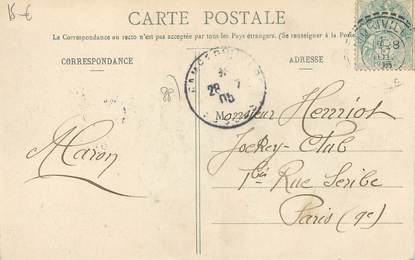 15 €
CARTE POSTALE
La Correspondance au recto n'est pas acceptée par tous les Pays étrangers. (Se renseigner à la Poste
CORRESPONDANCE
ADRESSE
28 7
05
Monsieur Henriot
Jockey-Club
1bis Rue Scribe
Paris (9e)